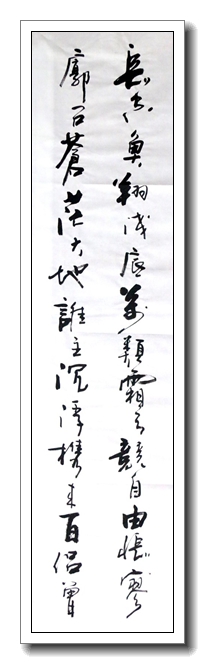 長空魚翔浅底萬類霜天競自由悵寥
廓问蒼茫大地誰主沉浮携来百侣曾